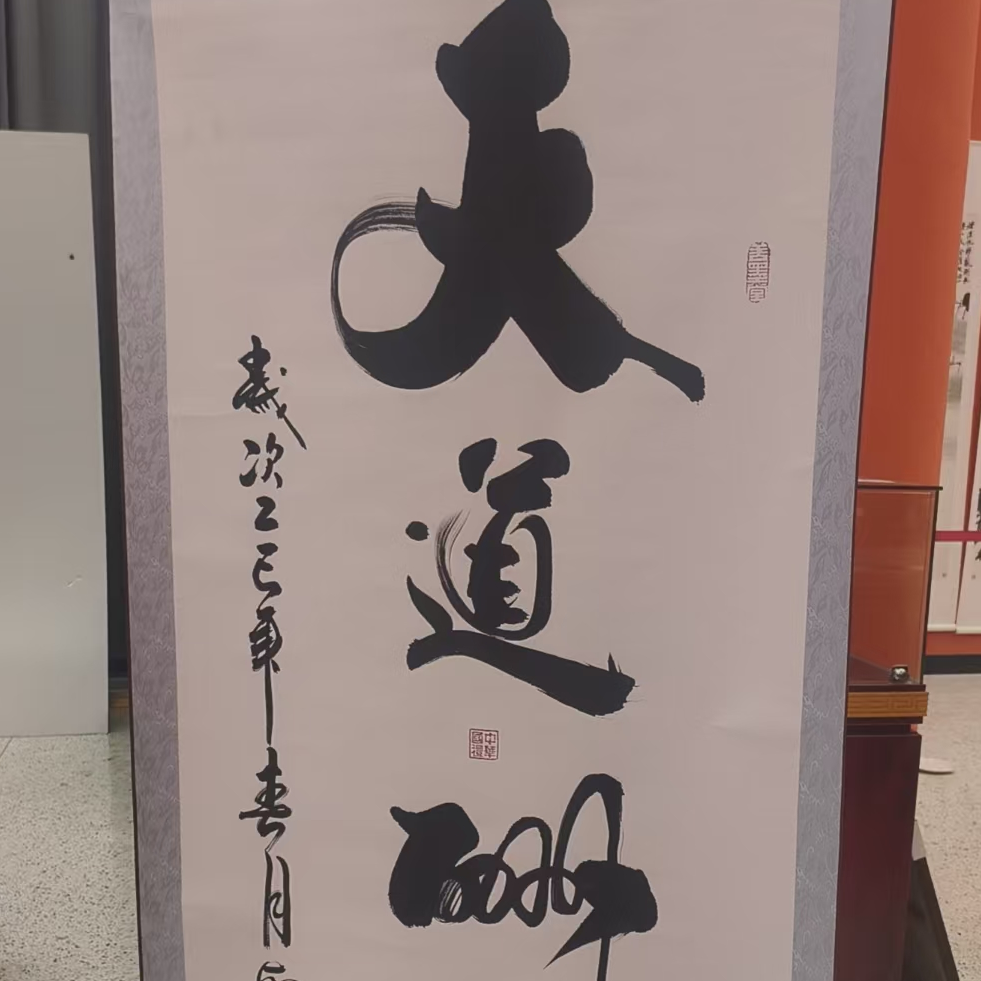 天道酬
歲次乙巳年春月
中華國禮